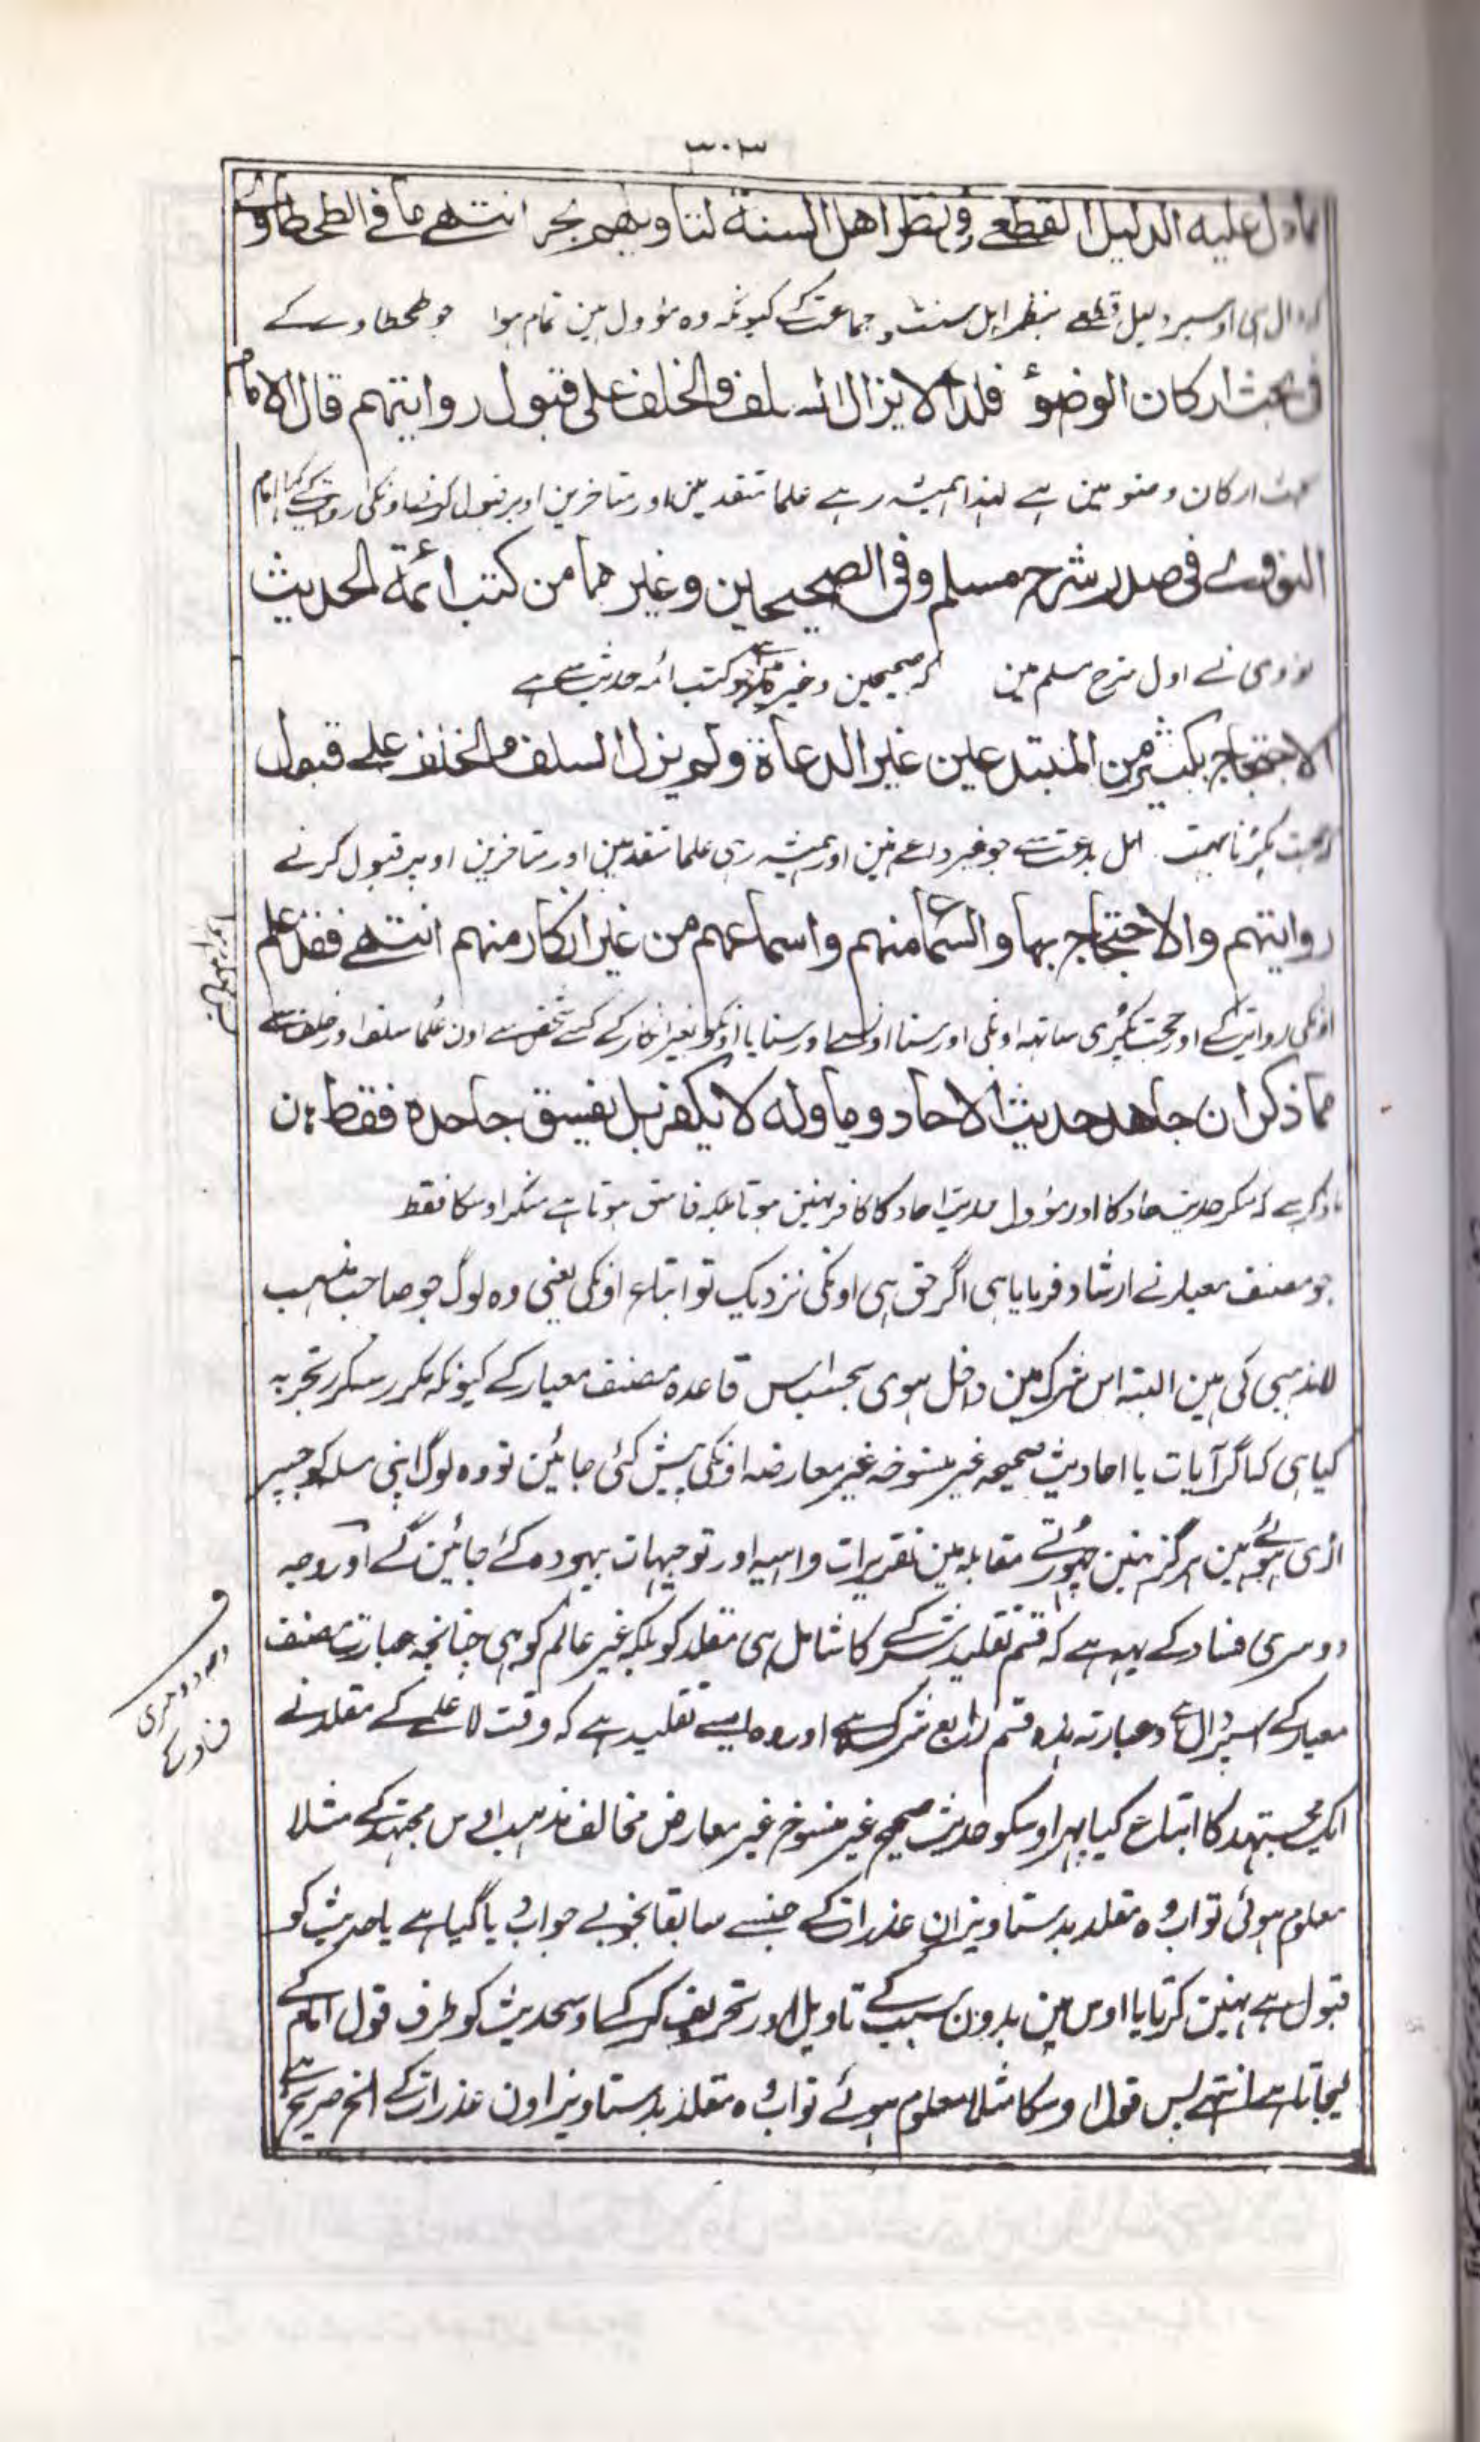 ٣٠٣
مادل عليه الدليل القطعے فی نظر اهل السنة لتاويلهم بحر انتهے ما فی الطحطاوے
دال ہی اوسپر دلیل قطعے بنظر اہل سنت و جماعت کے کیونکہ وہ مؤول ہین تمام ہوا جو طحطاوے کے
فی بحث ارکان الوضوء فلذا لا یزال السلف والخلف علی قبول روایتهم قال الامام
بحث ارکان وضو مین ہے لہذا ہمیشہ رہے علما متقدمین اور متاخرین اوپر قبول کرنے اونکی روایت کے کہا امام
النووے فی صدر شرح مسلم و فی الصحیحین و غیرهما من کتب ائمة الحدیث
نووی نے اول شرح مسلم مین کہ صحیحین و غیرہ کتب ائمہ حدیث سے ہے
الاحتجاج بکثیر من المبتدعین غیر الدعاة ولم یزل السلف والخلف علے قبول
حجت پکڑنا بہت اہل بدعت سے جو غیر داعے ہین اور ہمیشہ رہی علما متقدمین اور متاخرین اوپر قبول کرنے
روایتهم والاحتجاج بها والسماع منهم واسماعهم من غیر انکار منهم انتهے فقد علم
اونکی روایت کے اور حجت پکڑی ساتھہ اونکی اور سنا اونسے اور سنایا اونکو بغیر انکار کے کسے شخص سے اون علما سلف اور خلف سے
مما ذکر ان جاحد حدیث الاحاد و ماوله لا یکفر بل یفسق جاحده فقط
ذکر ہے کہ منکر حدیث احاد کا اور مؤول حدیث احاد کا کافر نہین ہوتا بلکہ فاسق ہوتا ہے منکر اوسکا فقط
جو مصنف معیار نے ارشاد فرمایا ہی اگر حق ہی اونکی نزدیک تو اتباع اونکی یعنی وہ لوگ جو صاحب مذہب
لامذہبی کی ہین البتہ اس شرک مین داخل ہوی بحسب اس قاعدہ مصنف معیار کے کیونکہ مکرر سکرر تجربہ
کیا ہی کہ اگر آیات یا احادیث صحیحہ غیر منسوخہ غیر معارضہ اونکی پیش کئی جائین تو وہ لوگ اپنی مسلہ کو جسپر
اڑی ہوئے ہین ہرگز نہین چھوڑتے مقابلہ مین تقریرات واہیہ اور توجیہات بیہودہ کئے جائین گے اور وجہ
دوسری فساد کے یہہ ہے کہ قسم تقلید شرک کا شامل ہی مقلد کو بلکہ غیر عالم کو ہی چنانچہ عبارت مصنف
معیار کے اسپر دال ہے وعبارتہ ہذہ قسم رابع شرک ہے اور وہ ایسے تقلید ہے کہ وقت لا علمے کے مقلد نے
ایک مجتہد کا اتباع کیا پہر اوسکو حدیث صحیح غیر منسوخ غیر معارض مخالف مذہب اوس مجتہد کے مثلا
معلوم ہوئی تو اب وہ مقلد بدستاویز ان عذرات کے جنسے سابقا بخوبے جواب دیا گیا ہے یا حدیث کو
قبول ہے نہین کرتا یا اوس مین بدون سبب کے تاویل اور تحریف کر کے اوس حدیث کو طرف قول امام کے
لیجاتا ہے انتہے پس قول اوسکا مثلا معلوم ہوئے تو اب وہ مقلد بدستاویز اون عذرات کے الخ صریح ہے
وجہ دوسری
فساد کے